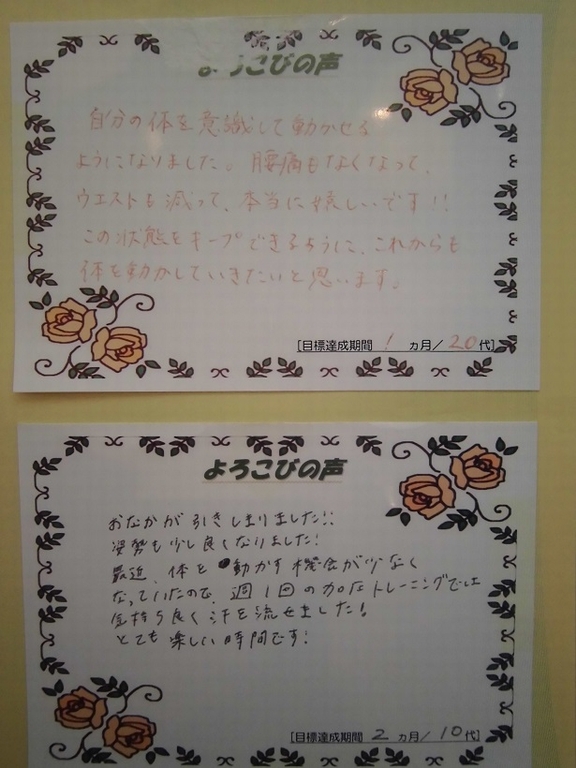 よろこびの声
自分の体を意識して動かせる
ようになりました。腰痛もなくなって、
ウエストも減って、本当に嬉しいです!!
この状態をキープできるように、これからも
体を動かしていきたいと思います。
[目標達成期間 1 ヵ月/20代]
よろこびの声
おなかが引きしまりました!!
姿勢も少し良くなりました!
最近、体を動かす機会が少なく
なっていたので、週1回のトレーニングでは
気持ち良く汗を流せました!
とても楽しい時間です!
[目標達成期間 2 ヵ月/10代]